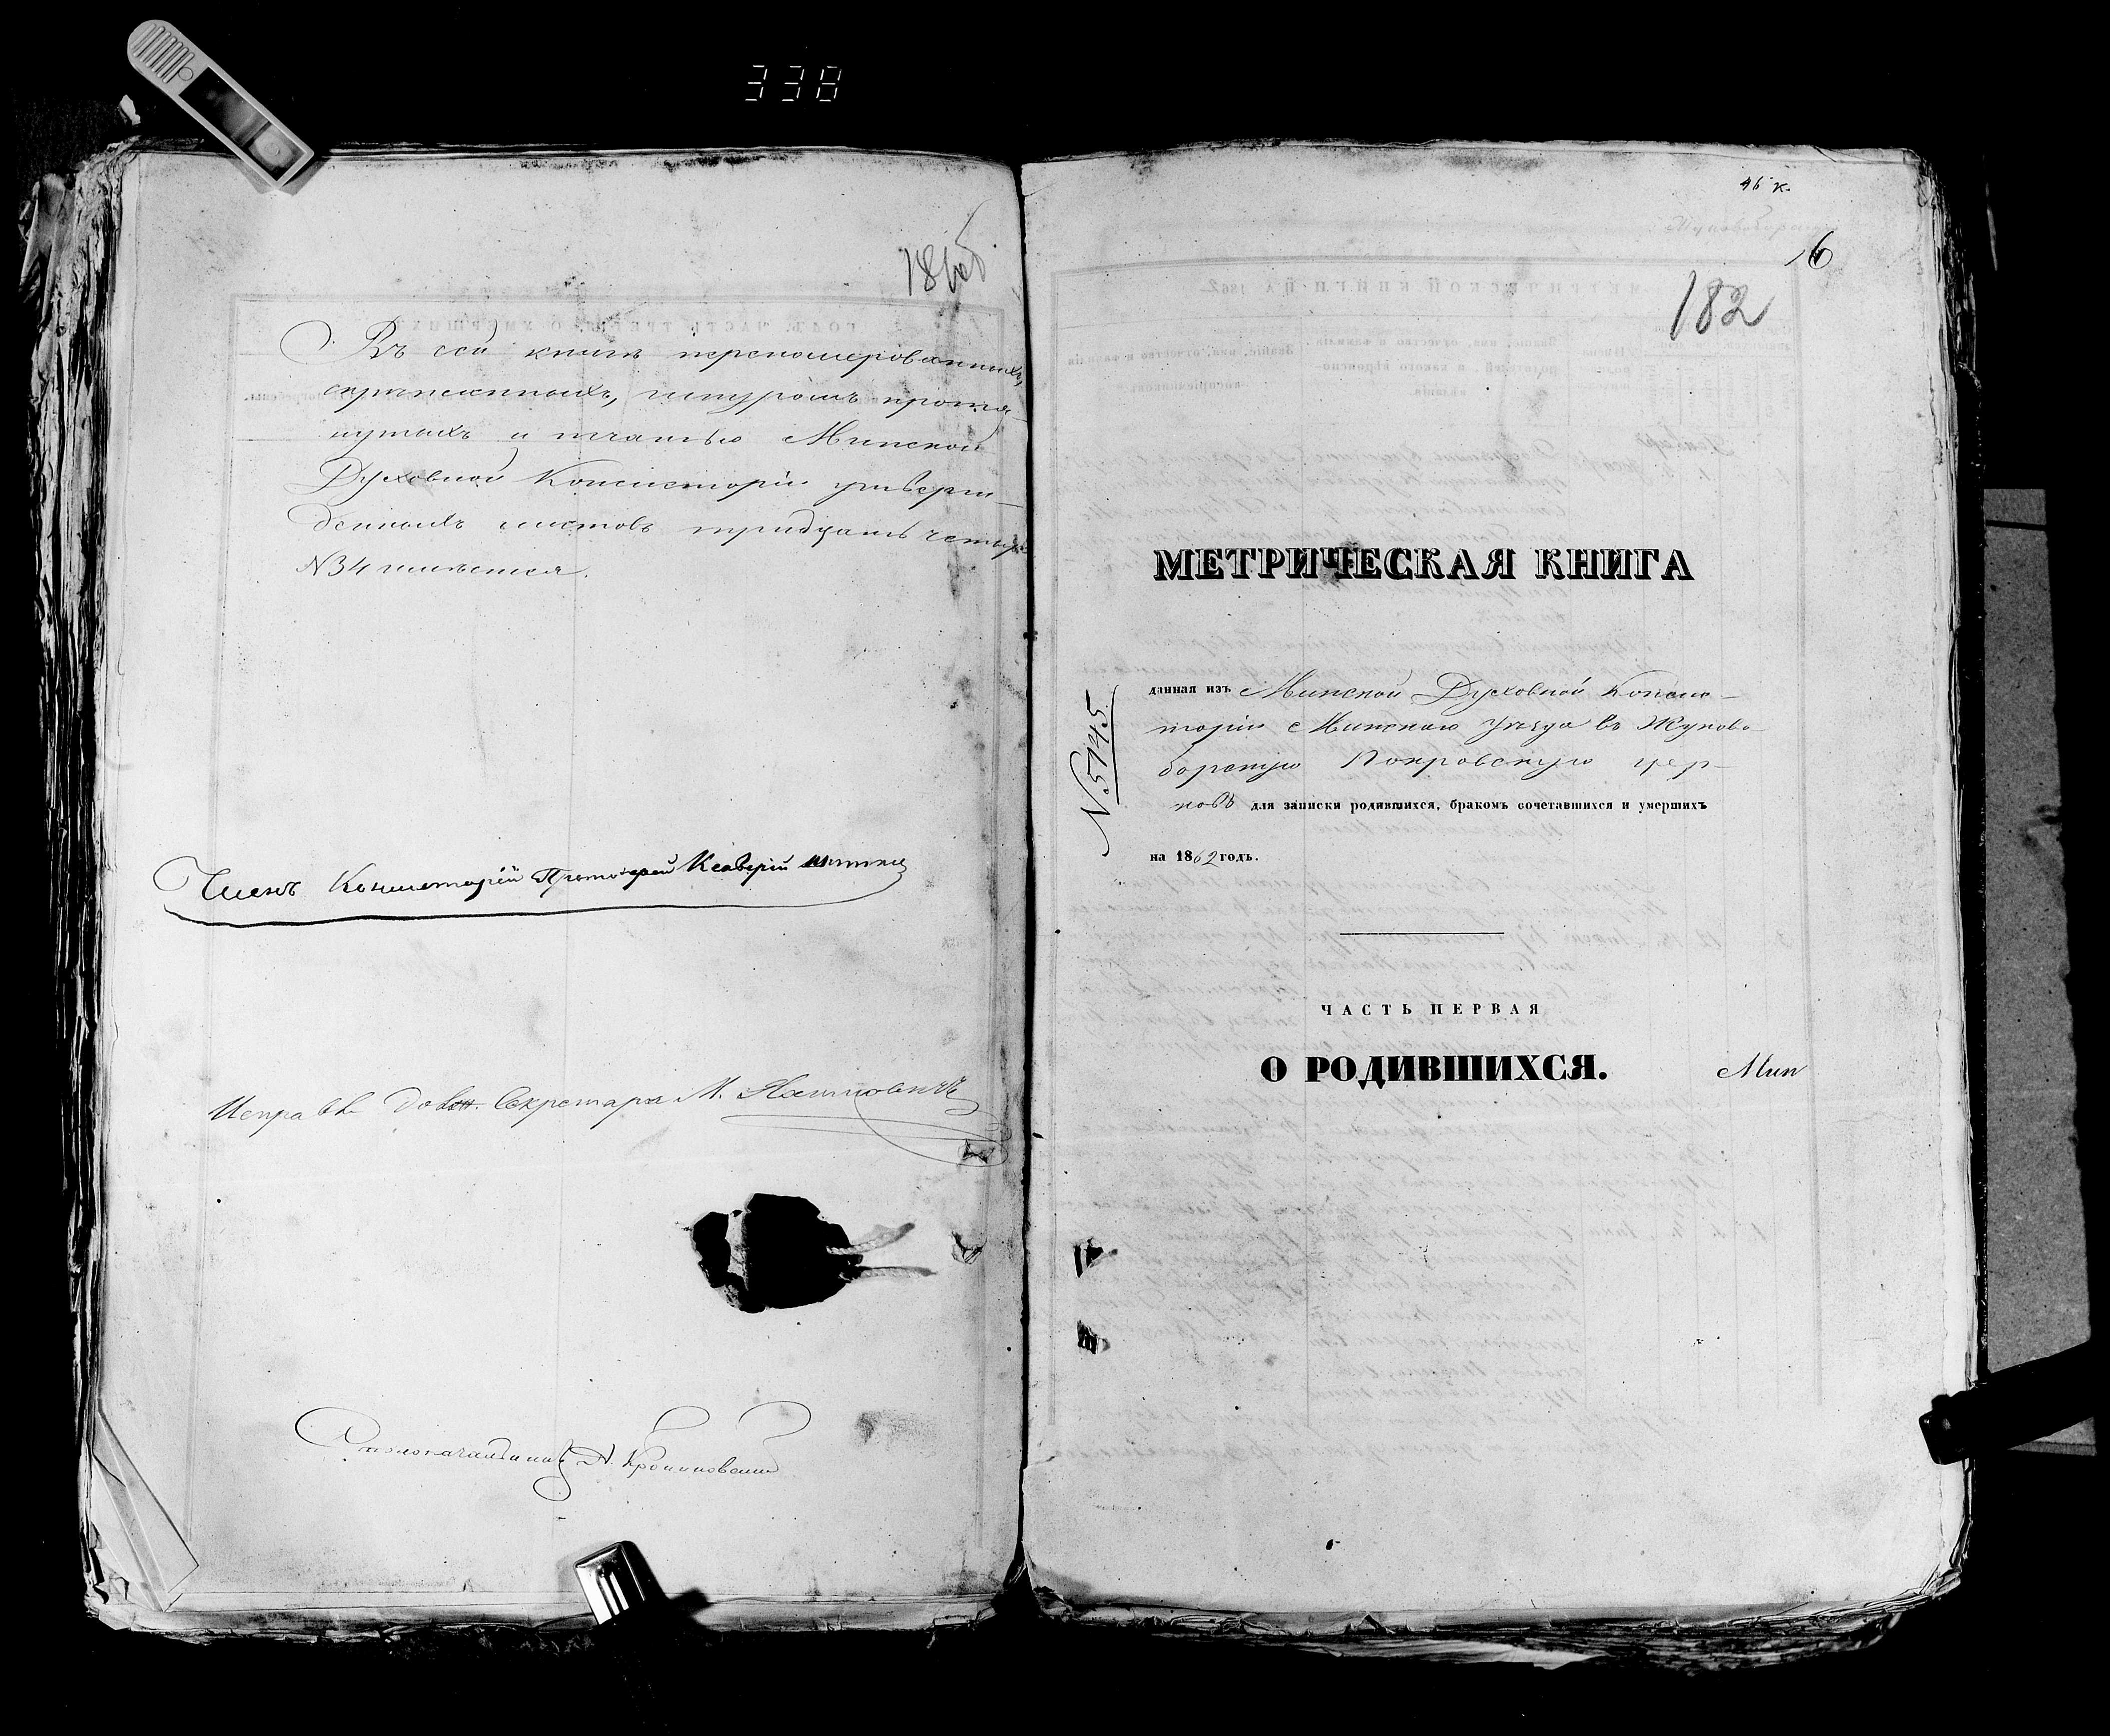 338
Въ сей книгѣ перенумерованныхъ,
скрѣпленныхъ, шнуромъ протя-
нутыхъ и печатью Минской
Духовной Консисторіи утверж-
денныхъ листовъ тридцать четыре
№34 имѣется.
Членъ Консисторіи Протоіерей Ксаверій
Исправ. Должн. Секретаря М.
Столоначальникъ А.
46 к.
16
182
МЕТРИЧЕСКАЯ КНИГА
№ 5145
данная изъ Минской Духовной Консис-
торіи Минскаго уѣзда въ Жуково-
борскую Покровскую цер-
ковь для записки родившихся, бракомъ сочетавшихся и умершихъ
на 1862 годъ.
ЧАСТЬ ПЕРВАЯ
О РОДИВШИХСЯ.
Мин